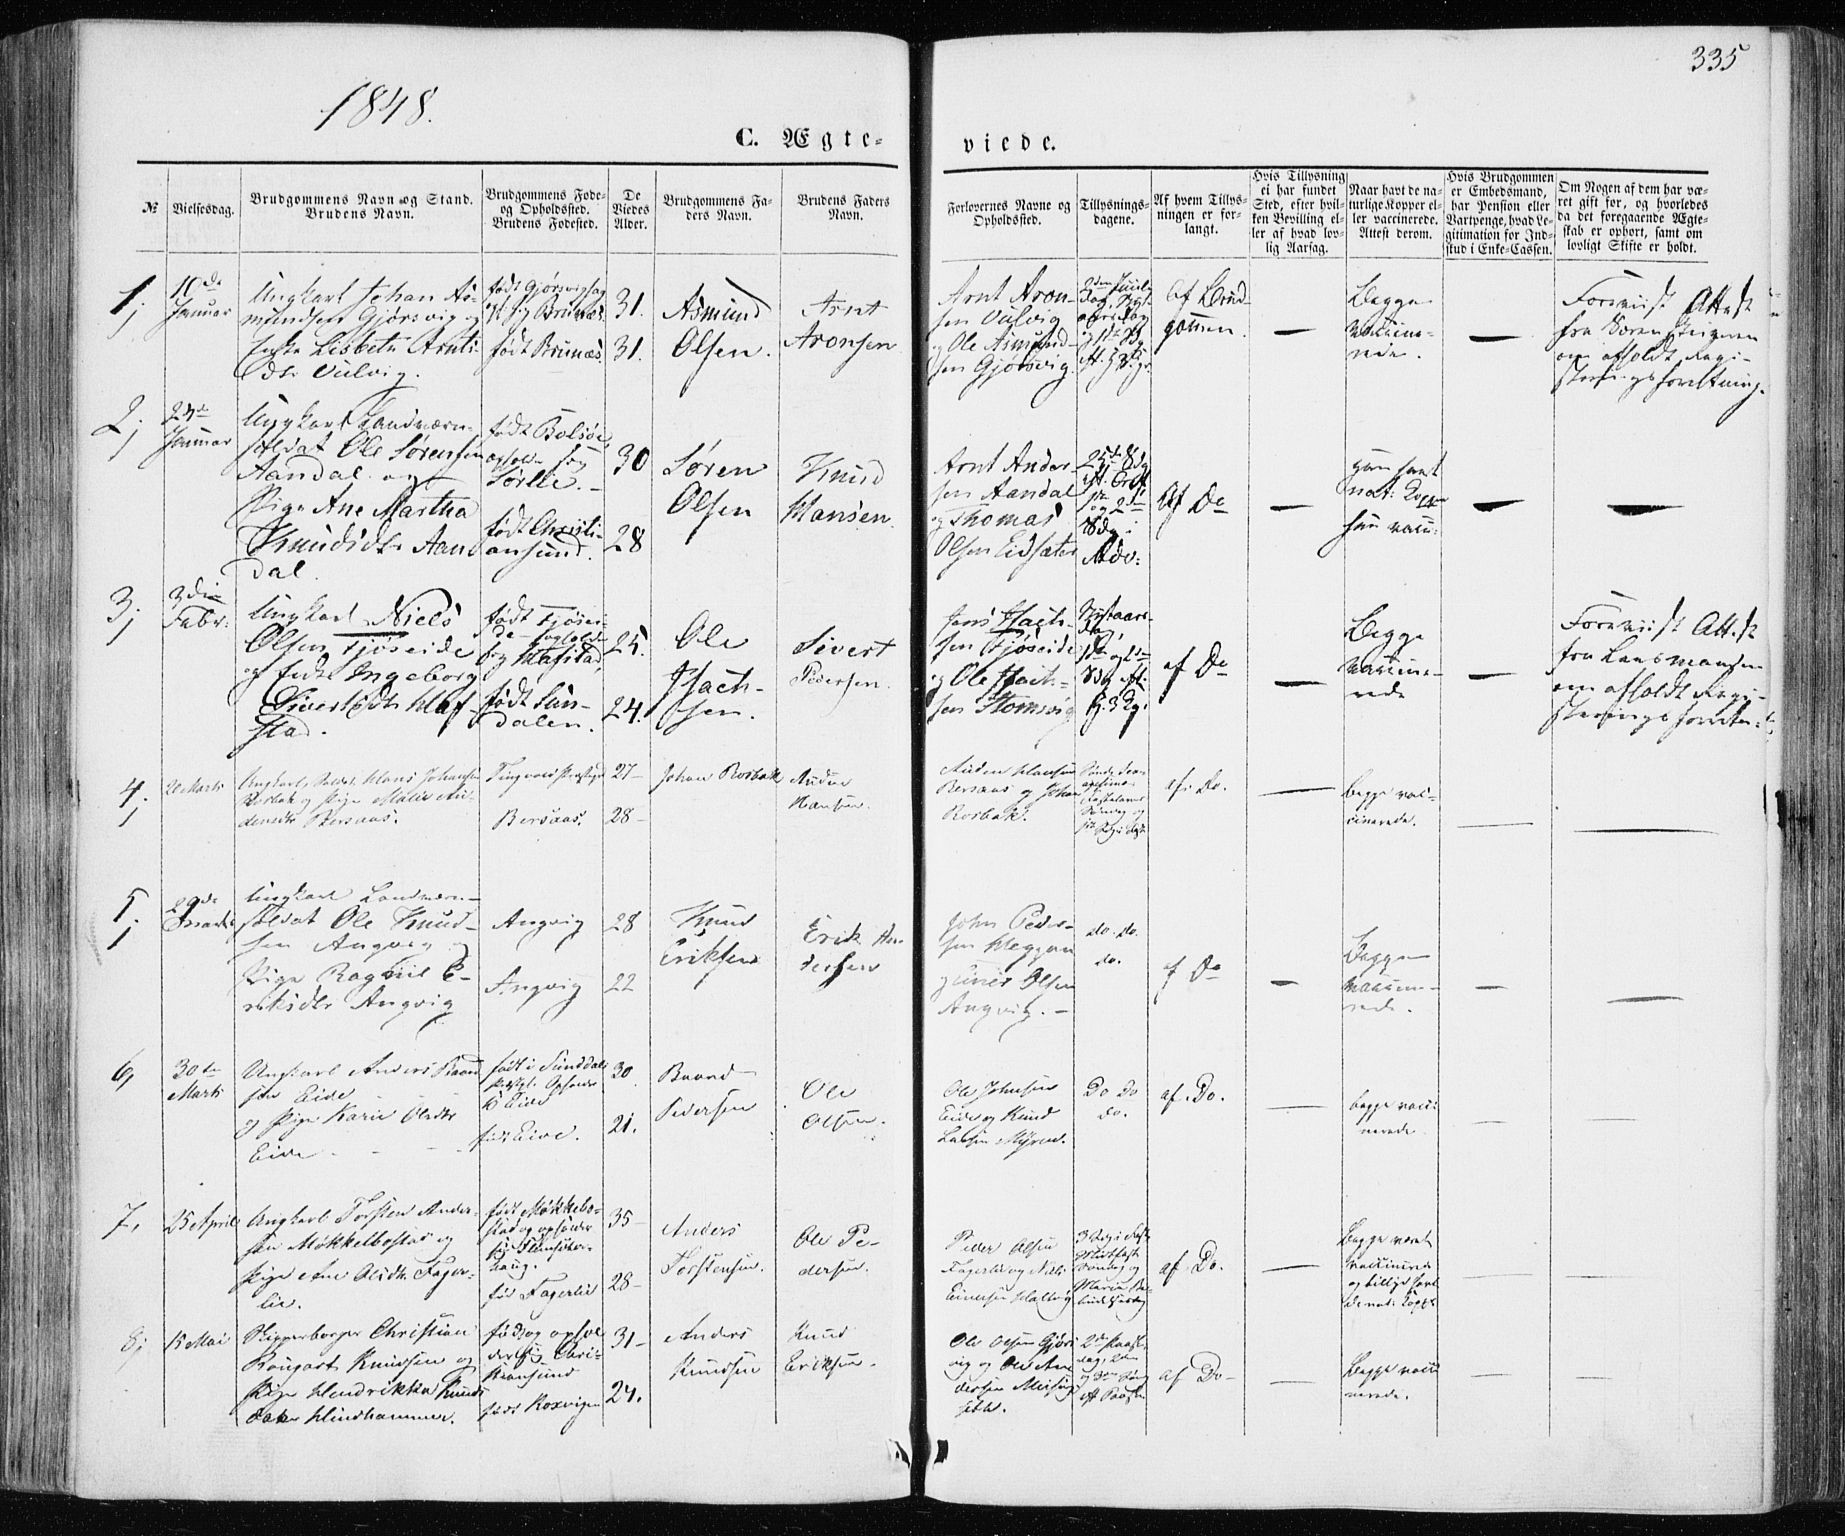 335
1848.
C. Ægte-
viede.
№
Vielsesdag.
Brudgommens Navn og Stand.
Brudens Navn.
Brudgommens Føde-
og Opholdssted.
Brudens Fødested.
De
Viedes
Alder.
Brudgommens Fa-
ders Navn.
Brudens Faders
Navn.
Forlovernes Navne og
Opholdssted.
Tillysnings-
dagene.
Af hvem Tillys-
ningen er for-
langt.
Hvis Tillysning
ei har fundet
Sted, efter hvil-
ken Bevilling el-
ler af hvad lov-
lig Aarsag.
Naar havt de na-
turlige Kopper el-
ler vaccinerede.
Attest derom.
Hvis Brudgommen
er Embedsmand,
har Pension eller
Vartpenge, hvad Le-
gitimation for Ind-
skud i Enke-Cassen.
Om Nogen af dem har væ-
ret gift før, og hvorledes
da det foregaaende Ægte-
skab er ophørt, samt om
lovligt Skifte er holdt.
1;
10de
Januar
Ungkarl Johan As-
mundsen Gjørsvig og
Enke Lisbeth Arnts-
dtr Vulvig.
født Gjørsvig og
Brunæs.
født Brunæs.
31.
31.
Asmund
Olsen.
Arnt
Aronsen
Arnt Aron-
sen Vulvig
og Ole Asmund-
sen Gjørsvig.
Af Brud-
gommen.
Begge
vaccine-
rede.
Foreviist Attest
fra Sorenskriveren
om afholdt Regi-
streringsforretning.
2;
24de
Januar
Ungkarl Landværn-
soldat Ole Sørensen
Aandal og
Pige Ane Martha
Knudsdtr Aan-
dal.
født Bolsøe,
Sørlie.
født Christi-
ansund.
30
28
Søren
Olsen
Knud
Hansen.
Arnt Ander-
sen Aandal
og Thomas
Olsen Eidsæter
Af Do
3;
3die
Febr:
Ungkarl Niels
Olsen Fjøseide
og Enke Ingeborg
Sivertsdtr Haf-
stad.
født Fjøsei-
de
Hafstad,
født Sun-
dalen.
25.
24.
Ole
Isach-
sen.
Sivert
Pedersen.
Jens Isach-
sen Fjøseide
og Ole Isach-
sen Stomvig
Nytaars-
dag
af Do
Begge
vaccine-
rede
Foreviist Attest
fra Lensmanden
om afholdt Regi-
streringsforretn:
4;
20 Marts
Ungkarl, Soldat Hans Johansen
Rosbak og Pige Malie Au-
densdtr Bersaas.
Tingvold Præstegj
Bersaas.
27-
28-
Johan Rosbak
Auden
Hansen.
Auden Hansen
Bersaas og Johan
Rosbak.
af Do.
begge vac-
cinerede.
5;
29de
Marts
Ungkarl Landværn-
soldat Ole Knud-
sen Angvig og
Pige Ragnil E-
riksdtr Angvig
Angvig
Angvig
28
22
Knud
Eriksen
Erik An-
dersen
John Peder-
sen Meggen
Olsen
Angvig.
do. do.
do.
af Do
Begge
vaccine-
rede.
6,
30te
Marts
Ungkarl Anders Baard-
sen Eide
og Pige Karie Olsdtr
Eide
født i Sunddals
Præstgj. Opholder
Eide
født Eide.
30
21.
Baard
Pedersen
Ole
Olsen.
Ole Johnsen
Eide og Knud
Larsen Myren.
Do Do
do.
af Do.
begge vacci-
nerede
7,
25 April
Ungkarl Torsten Ander-
sen Møkkelbostad og
Pige Ane Olsdtr Fager-
lie.
født Møkkelbo-
stad og opholder
haug.
født Fagerlie
35-
28-
Anders
Torstensen.
Ole Pe-
dersen.
Peder Olsen
Fagerlie og Niels
Einersen Halsvig
af Do.
Begge været
vaccinerede
og tillige havt
de nat: Kopper
8;
15 Mai
Skipperborger Christian
Bangart Knudsen og
Pige Hendrikka Knuds-
datter Hindhammer.
født og ophol-
der sig Chri-
stiansund
født Roxvigen
31-
24.
Anders
Knudsen
Knud
Eriksen.
Ole Olsen Gjørs-
vig og Ole An-
dersen Meising-
sæter.
af Do-
Begge vacci-
nerede.